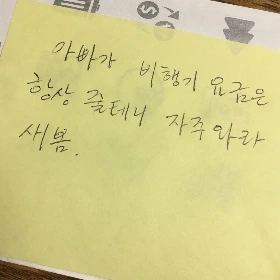 아빠가 비행기 요금은
항상 줄테니 자주 와라
새봄.